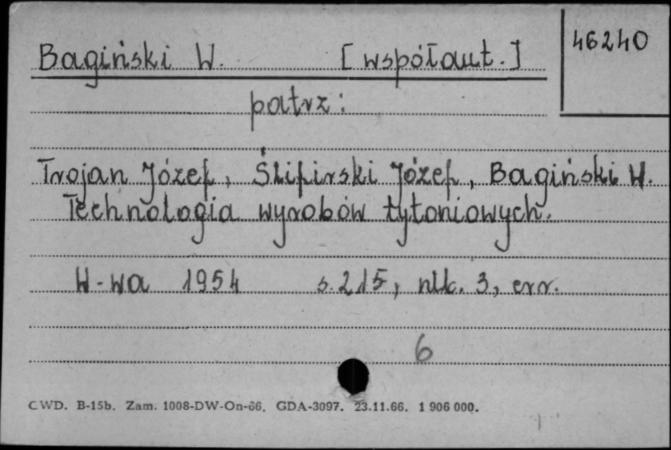 Bagiński W. [współaut.]
46240
patrz:
Trojan Józef, Ślipirski Józef, Bagiński W.
Technologia wyrobów tytoniowych.
W-wa 1954 s.215, nlb. 3, err.
6
CWD. B-15b. Zam. 1008-DW-On-66. GDA-3097. 23.11.66. 1 906 000.